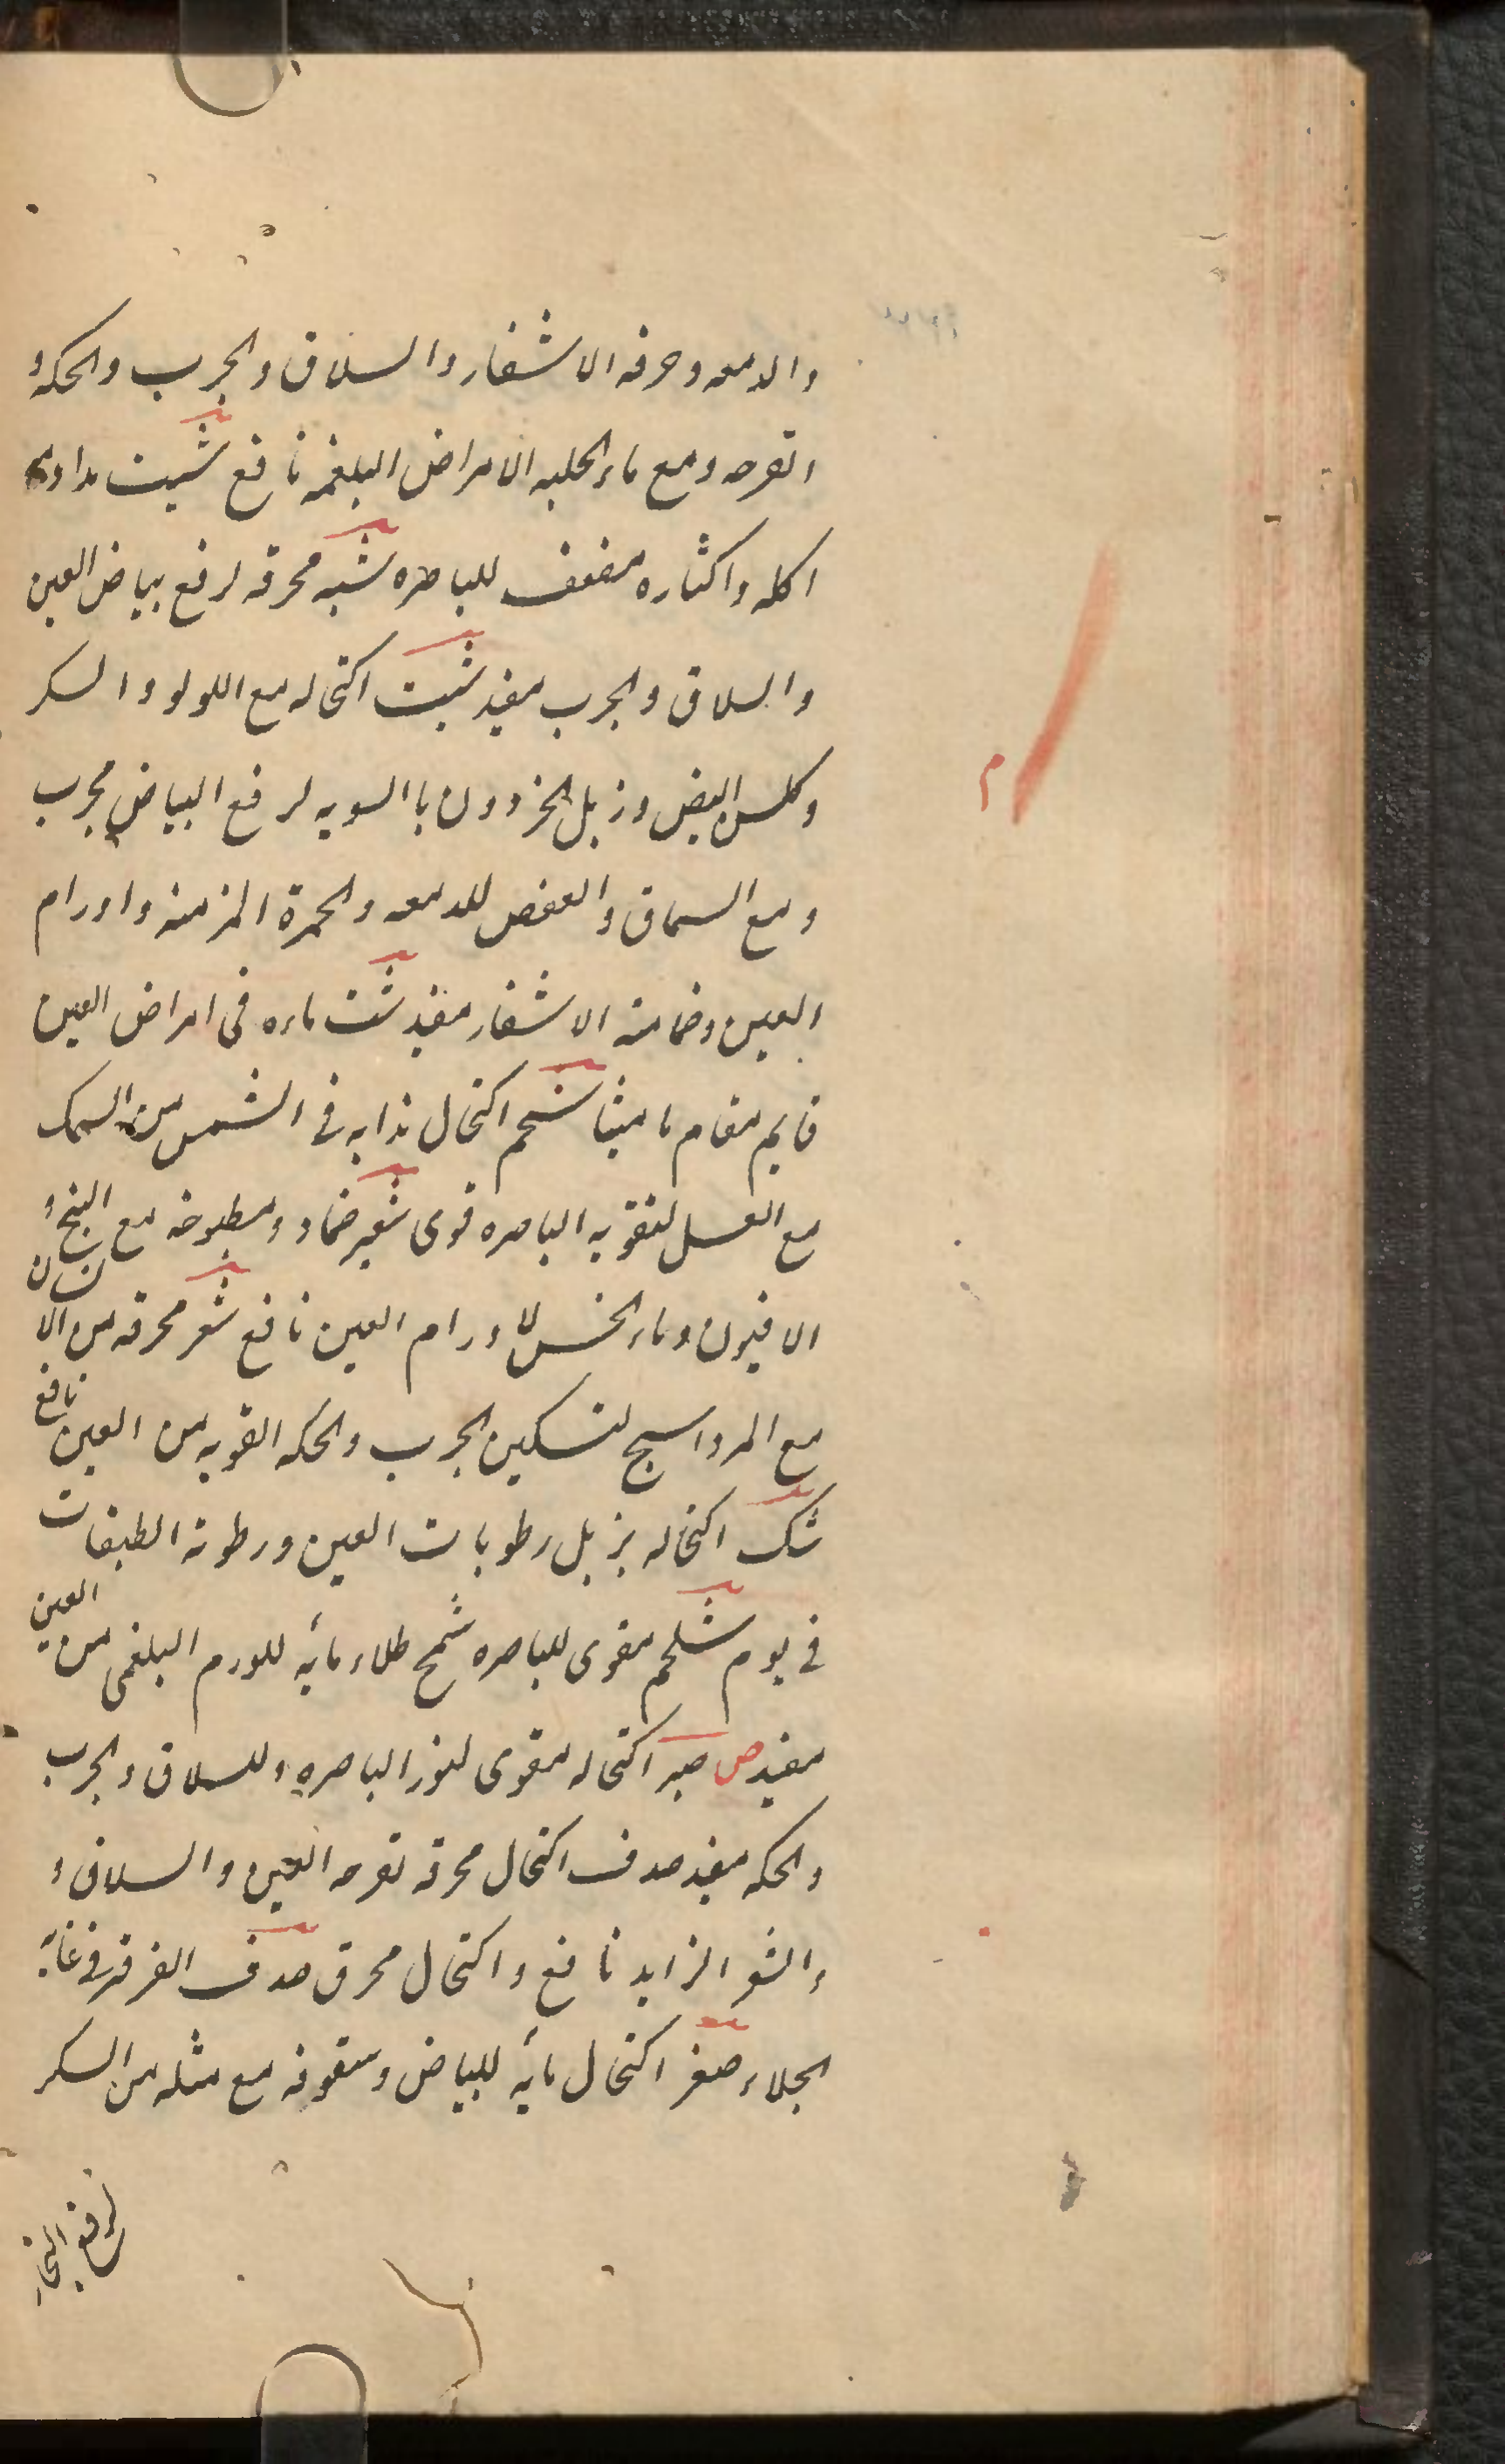 والدمعه وحرقه الاشفار والسلاق والجرب والحكه و
وتقرحه ومع ماء الحلبه الامراض البلغمه نافع شبت مداومه
اكله واكثاره مضعف للباصره شبه محرقه لرفع بياض العين
والسلاق والجرب مفيد شبت اكتحاله مع اللولو والسكر
وكلس البيض وزبل الحردون باالسويه لرفع البياض مجرب
ومع السماق والعفص للدمعه والحمرة المزمنه واورام
العين وضامنه الاشفار مفيد شت ماءه فى امراض العين
قايم مقام ماميثا شحم اكتحال مذابه فى الشمس من السمك
مع العسل لتقويه الباصره قوى شعير ضماد ومطبوخه مع البنج و
الافيون وماء الخس لاورام العين نافع شعر محرقه من الانسان
مع المرداسنج لتسكين الجرب والحكه القويه من العين نافع
شك اكتحاله يزيل رطوبات العين ورطوبة الطبقات
فى يوم شلجم مقوى للباصره شمح طلاء مايه للورم البلغمى من العين
مفيد ص صبر اكتحاله مقوى لنور الباصره وللسلاق والجرب
والحكه مفيد صدف اكتحال محرقه تقرحه العين والسلاق و
والشعر الزايد نافع واكتحال محرق صدف الفرفير فى غاية
الجلاء صعتر اكتحال مايه للبياض وسفوفه مع مثله من السكر
لرفع البخار
م